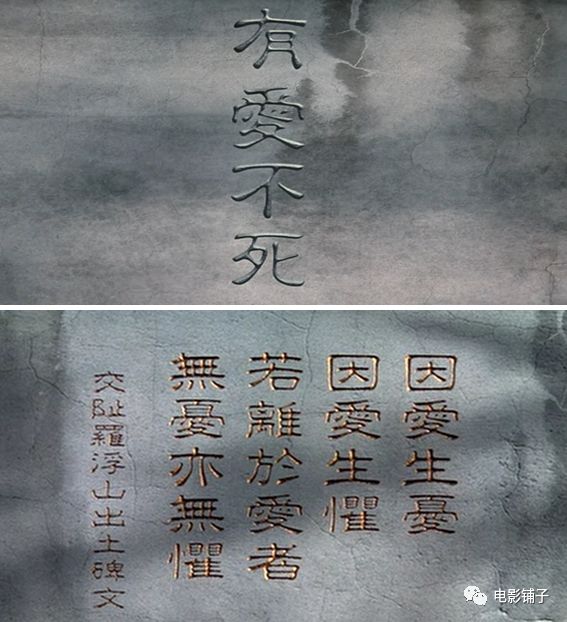 有愛不死
因愛生憂
因愛生懼
若離於愛者
無憂亦無懼
交趾羅浮山出土碑文
电影铺子